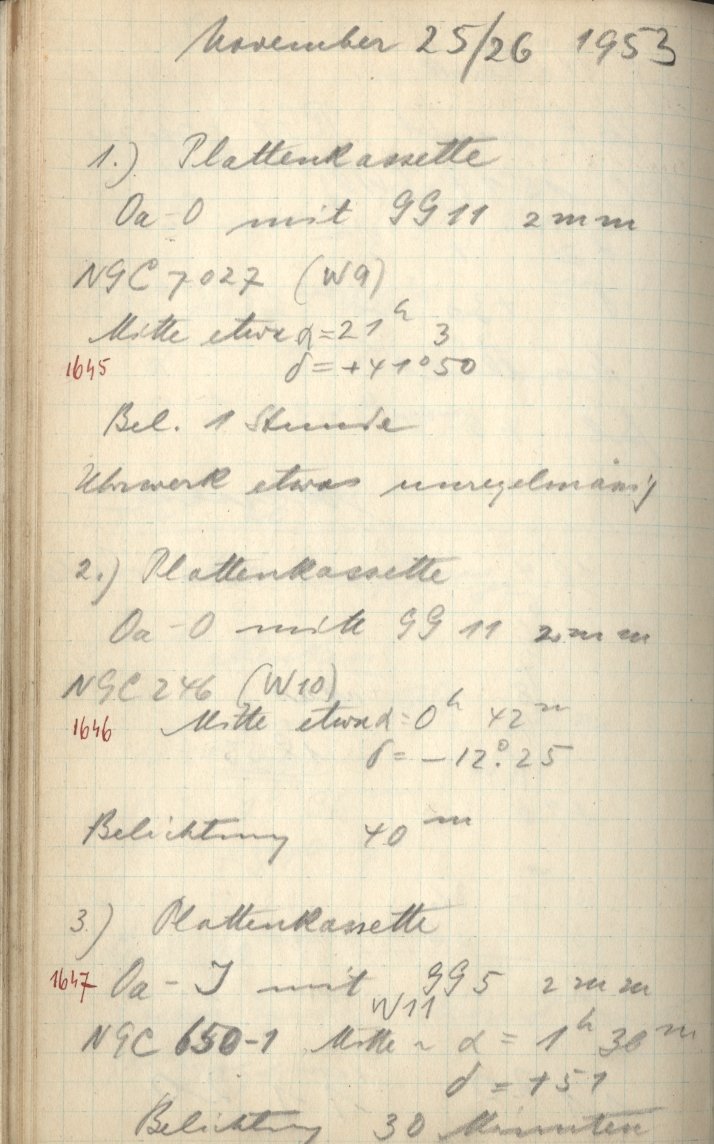 November 25/26 1953
1.) Plattenkassette
Oa-O mit GG 11 2 mm
NGC 7027 (W9)
Mitte etwa α = 21h 3
1645 δ = +41°50
Bel. 1 Stunde
Uhrwerk etwas unregelmässig
2.) Plattenkassette
Oa-O mitt GG 11 2 mm
NGC 246 (W10)
1646 Mitte etwa α = 0h 42m
δ = -12°.25
Belichtung 40m
3.) Plattenkassette
1647 Oa-J mit GG 5 2 mm
W11
NGC 650-1 Mitte ~ α = 1h 36m
δ = +51
Belichtung 30 Minuten